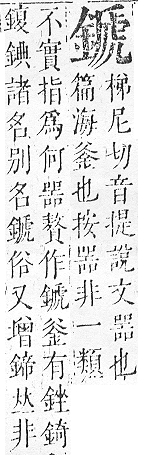 𨪉梯尼切音提說文器也
篇海釜也按器非一類
不實指爲何器贅作𨪉釜有銼錡
鍑錪諸名別名𨪉俗又增鍗𠀤非